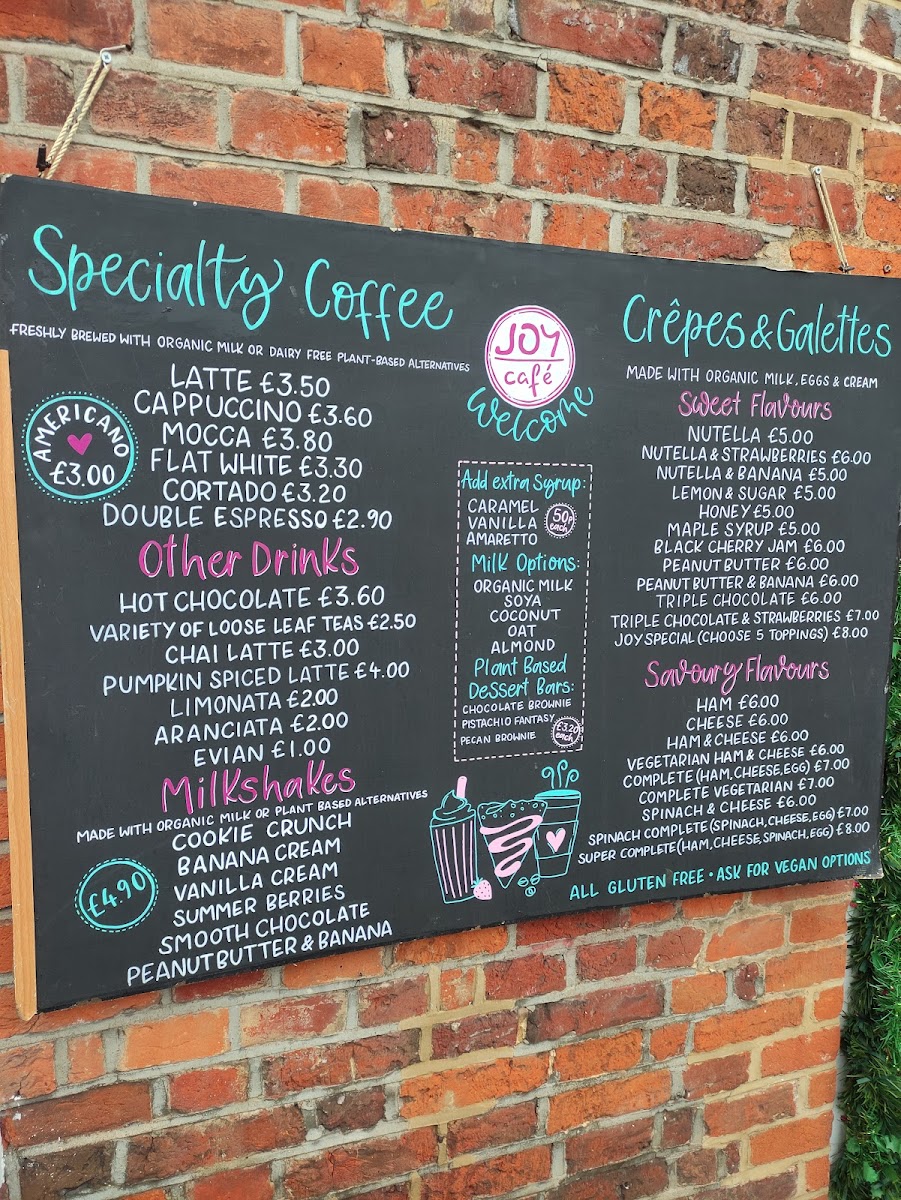 Specialty Coffee
FRESHLY BREWED WITH ORGANIC MILK OR DAIRY FREE PLANT-BASED ALTERNATIVES
AMERICANO
£3.00
LATTE £3.50
CAPPUCCINO £3.60
MOCCA £3.80
FLAT WHITE £3.30
CORTADO £3.20
DOUBLE ESPRESSO £2.90
Other Drinks
HOT CHOCOLATE £3.60
VARIETY OF LOOSE LEAF TEAS £2.50
CHAI LATTE £3.00
PUMPKIN SPICED LATTE £4.00
LIMONATA £2.00
ARANCIATA £2.00
EVIAN £1.00
Milkshakes
MADE WITH ORGANIC MILK OR PLANT BASED ALTERNATIVES
£4.90
COOKIE CRUNCH
BANANA CREAM
VANILLA CREAM
SUMMER BERRIES
SMOOTH CHOCOLATE
PEANUT BUTTER & BANANA
JOY
café
Welcome
Add extra Syrup:
CARAMEL
VANILLA
AMARETTO
50p
each
Milk Options:
ORGANIC MILK
SOYA
COCONUT
OAT
ALMOND
Plant Based
Dessert Bars:
CHOCOLATE BROWNIE
PISTACHIO FANTASY
PECAN BROWNIE
£3.20
each
Crêpes & Galettes
MADE WITH ORGANIC MILK, EGGS & CREAM
Sweet Flavours
NUTELLA £5.00
NUTELLA & STRAWBERRIES £6.00
NUTELLA & BANANA £5.00
LEMON & SUGAR £5.00
HONEY £5.00
MAPLE SYRUP £5.00
BLACK CHERRY JAM £6.00
PEANUT BUTTER £6.00
PEANUT BUTTER & BANANA £6.00
TRIPLE CHOCOLATE £6.00
TRIPLE CHOCOLATE & STRAWBERRIES £7.00
JOY SPECIAL (CHOOSE 5 TOPPINGS) £8.00
Savoury Flavours
HAM £6.00
CHEESE £6.00
HAM & CHEESE £6.00
VEGETARIAN HAM & CHEESE £6.00
COMPLETE (HAM, CHEESE, EGG) £7.00
COMPLETE VEGETARIAN £7.00
SPINACH & CHEESE £6.00
SPINACH COMPLETE (SPINACH, CHEESE, EGG) £7.00
SUPER COMPLETE (HAM, CHEESE, SPINACH, EGG) £8.00
ALL GLUTEN FREE • ASK FOR VEGAN OPTIONS